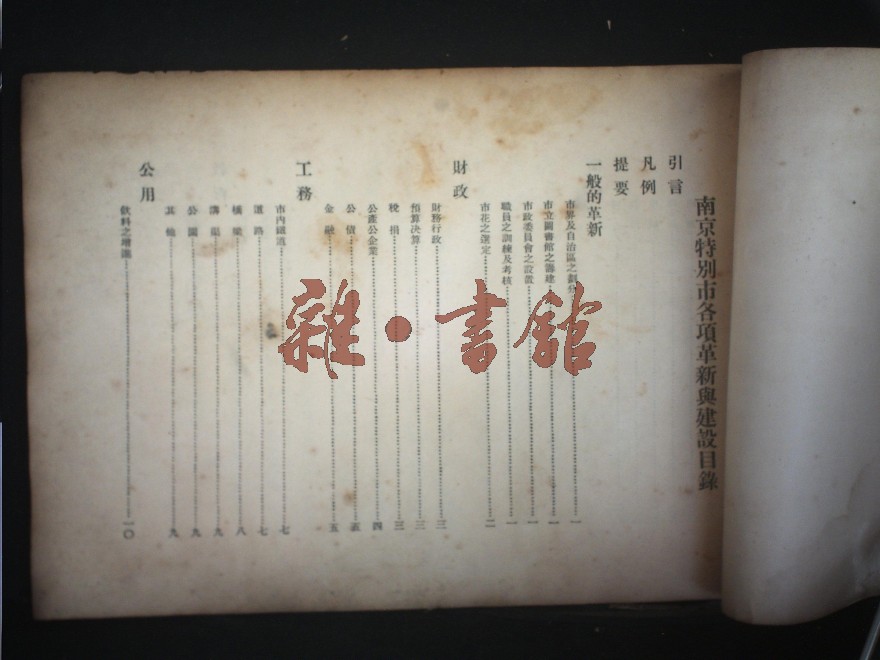 南京特別市各項革新與建設目錄
引言
凡例
提要
一般的革新
市界及自治區之劃分……一
市立圖書館之籌建……一
市政委員會之設置……一
職員之訓練及考核……一
市花之選定……二
財政
財務行政……三
預算決算……三
稅捐……三
公產公企業……四
公債……五
金融……五
工務
市內鐵道……七
道路……七
橋樑……八
溝渠……九
公園……九
其他……九
公用
飲料之增進……一〇
雜·書館